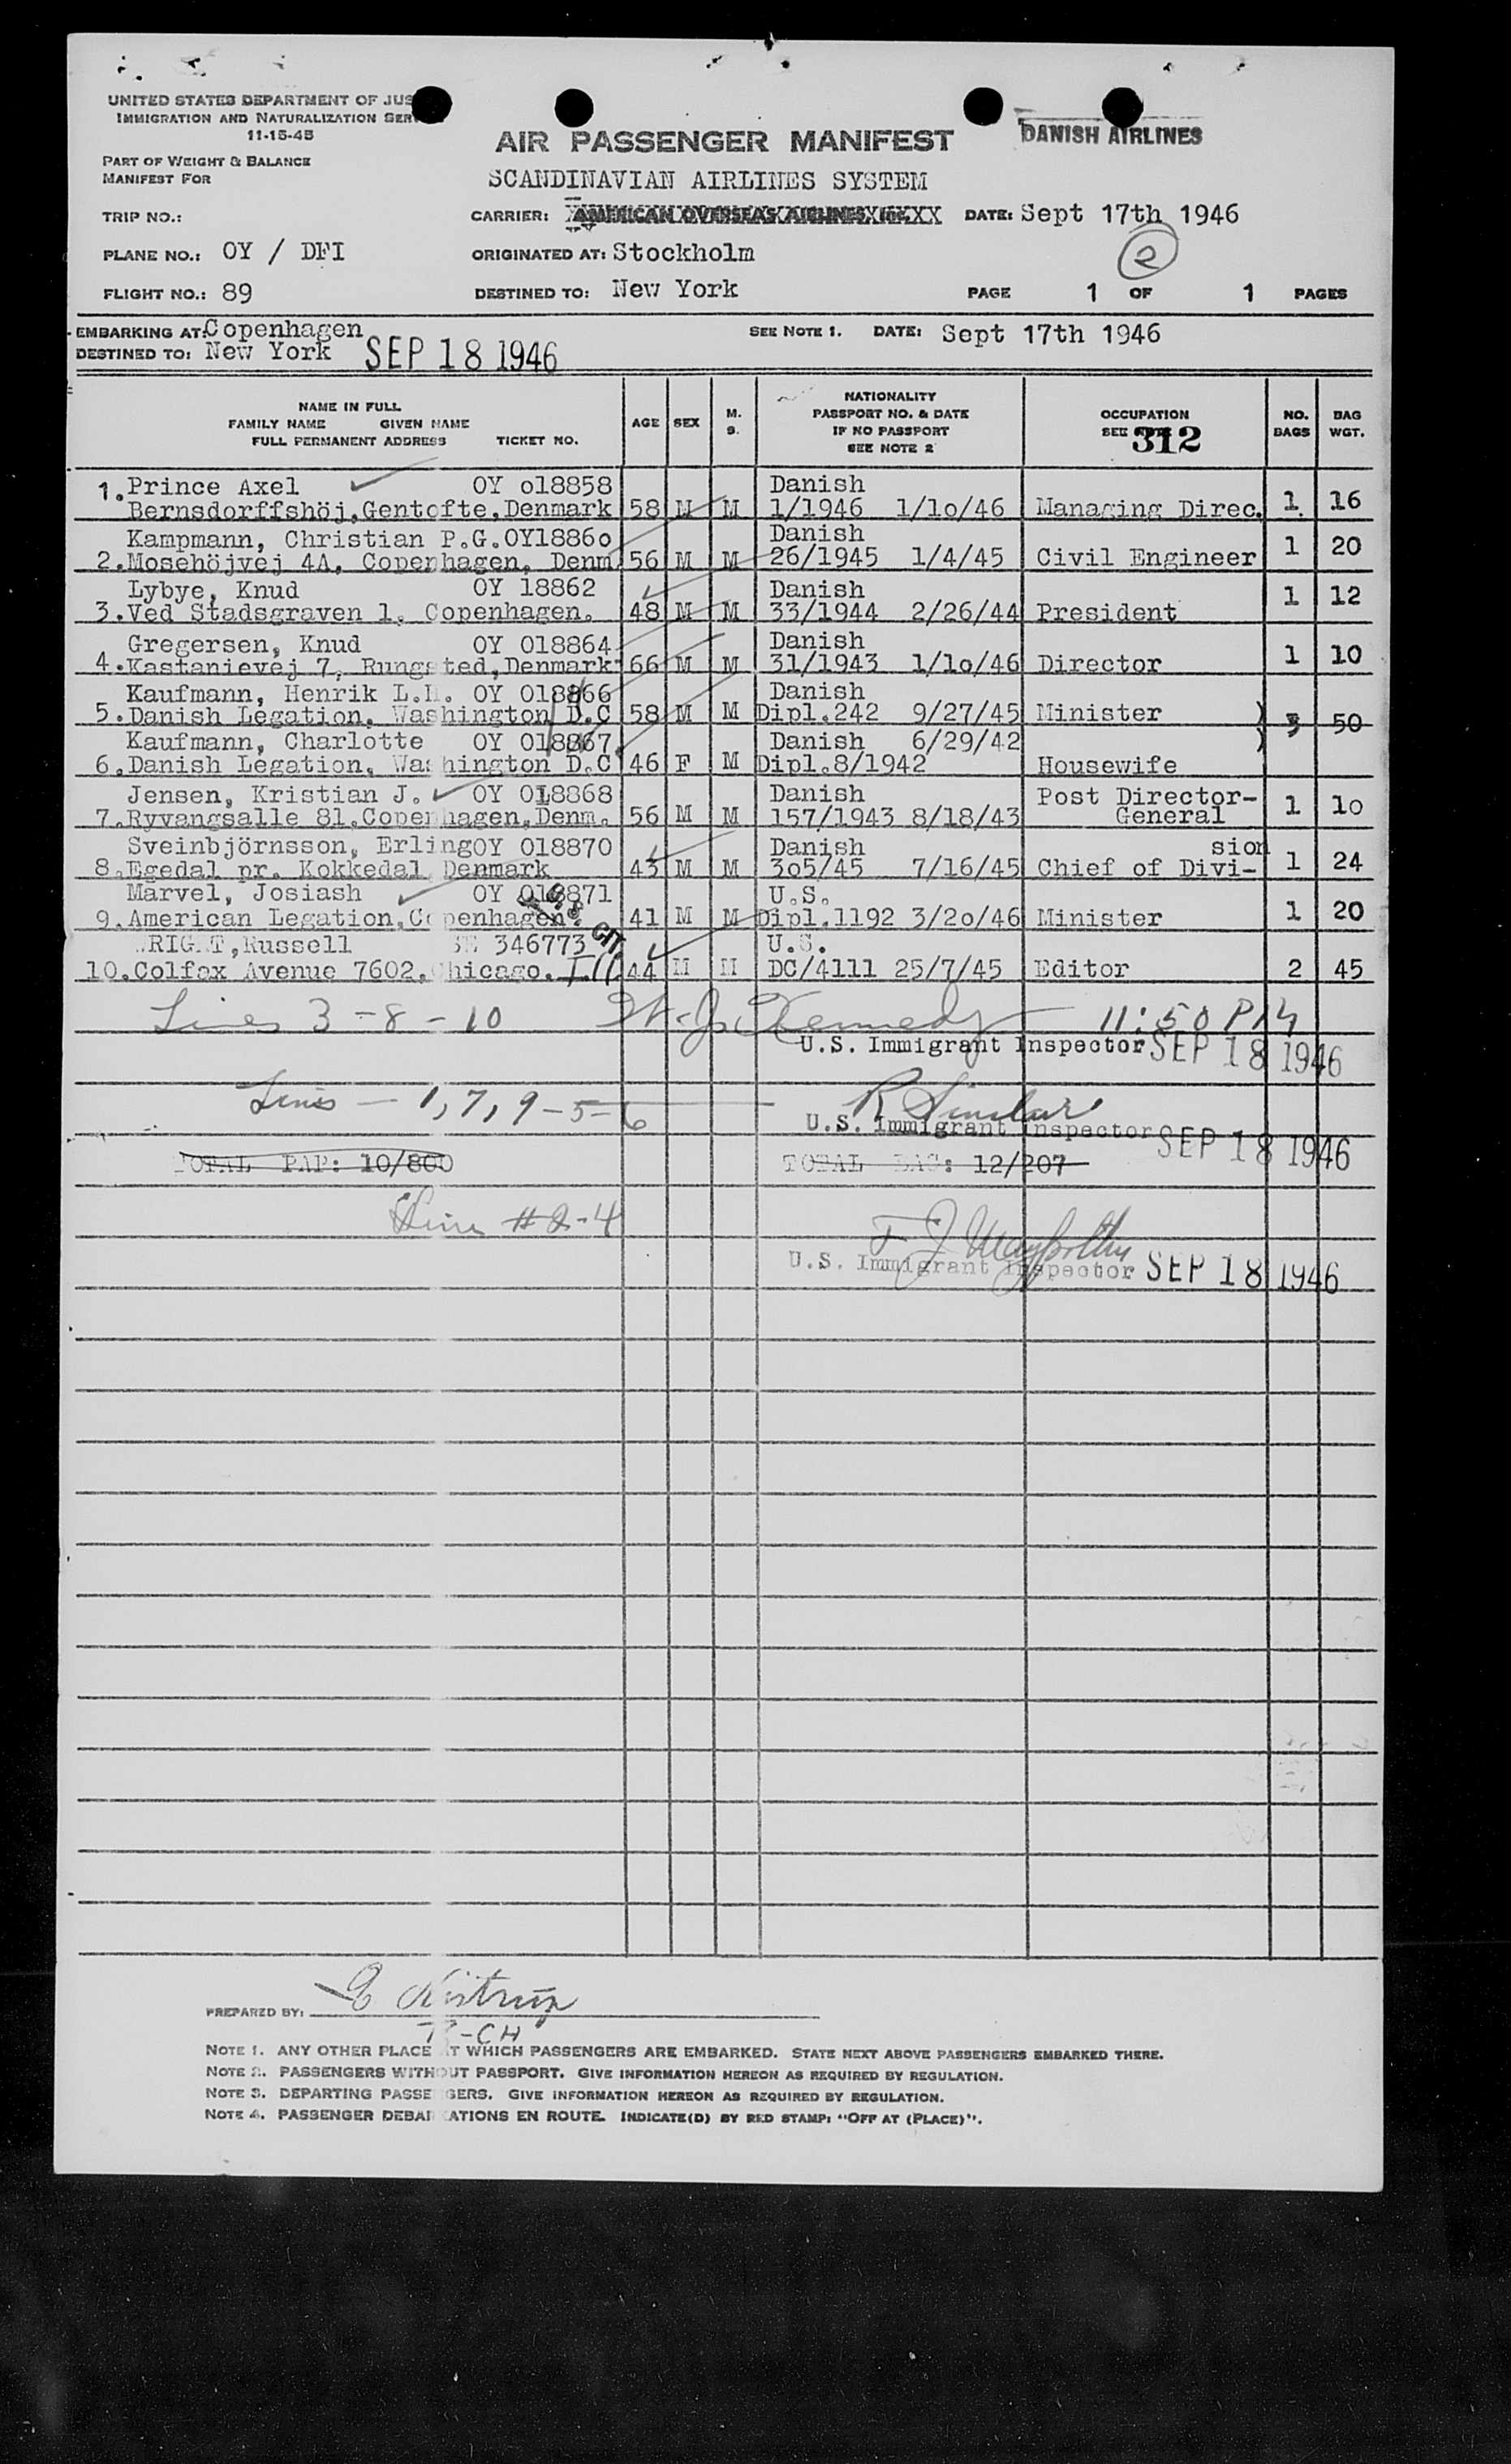 UNITED STATES DEPARTMENT OF JUS
IMMIGRATION AND NATURALIZATION SER
11-15-45
PART OF WEIGHT & BALANCE
MANIFEST FOR
AIR PASSENGER MANIFEST
DANISH AIRLINES
SCANDINAVIAN AIRLINES SYSTEM
TRIP NO.:
CARRIER: AMERICAN OVERSEAS AIRLINES DATE: Sept 17th 1946
PLANE NO.: OY / DFI ORIGINATED AT: Stockholm 2
FLIGHT NO.: 89 DESTINED TO: New York PAGE 1 OF 1 PAGES
EMBARKING AT: Copenhagen SEE NOTE 1. DATE: Sept 17th 1946
DESTINED TO: New York SEP 18 1946
NAME IN FULL
FAMILY NAME GIVEN NAME
FULL PERMANENT ADDRESS TICKET NO.
AGE SEX M. S.
NATIONALITY
PASSPORT NO. & DATE
IF NO PASSPORT
SEE NOTE 2
OCCUPATION
SEE 312
NO. BAGS
BAG WGT.
1. Prince Axel OY o18858 Danish
Bernsdorffshöj,Gentofte,Denmark 58 M M 1/1946 1/1o/46 Managing Direc. 1 16
Kampmann, Christian P.G.OY1886o Danish
2.Mosehöjvej 4A, Copenhagen, Denm 56 M M 26/1945 1/4/45 Civil Engineer 1 20
Lybye, Knud OY 18862 Danish
3.Ved Stadsgraven 1, Copenhagen. 48 M M 33/1944 2/26/44 President 1 12
Gregersen, Knud OY 018864 Danish
4.Kastanievej 7, Rungsted,Denmark 66 M M 31/1943 1/1o/46 Director 1 10
Kaufmann, Henrik L.H. OY 018866 Danish
5.Danish Legation, Washington D.C 58 M M Dipl.242 9/27/45 Minister ) 3 50
Kaufmann, Charlotte OY 018867 Danish 6/29/42 )
6.Danish Legation, Washington D.C 46 F M Dipl.8/1942 Housewife
Jensen, Kristian J. OY 018868 Danish Post Director-
7.Ryvangsalle 81.Copenhagen,Denm. 56 M M 157/1943 8/18/43 General 1 1o
Sveinbjörnsson, ErlingOY 018870 Danish sion
8.Egedal pr. Kokkedal Denmark 43 M M 3o5/45 7/16/45 Chief of Divi- 1 24
Marvel, Josiash OY 018871 U.S.
9.American Legation,Copenhagen. 41 M M Dipl.1192 3/2o/46 Minister 1 20
U.S. CIT.
WRIGHT,Russell 346773 U.S.
10.Colfax Avenue 7602,Chicago. Ill. 44 M M DC/4111 25/7/45 Editor 2 45
Lines 3 - 8 - 10 W. J. Kennedy 11:50 PM
U.S. Immigrant Inspector SEP 18 1946
Lines - 1, 7, 9 - 5 - 6 R Sinclair
U.S. Immigrant Inspector SEP 18 1946
TOTAL PAP: 10/800 TOTAL BAG: 12/207
Line # 2-4
U.S. Immigrant Inspector SEP 18 1946
PREPARED BY:
NOTE 1. ANY OTHER PLACE AT WHICH PASSENGERS ARE EMBARKED. STATE NEXT ABOVE PASSENGERS EMBARKED THERE.
NOTE 2. PASSENGERS WITHOUT PASSPORT. GIVE INFORMATION HEREON AS REQUIRED BY REGULATION.
NOTE 3. DEPARTING PASSENGERS. GIVE INFORMATION HEREON AS REQUIRED BY REGULATION.
NOTE 4. PASSENGER DEBARKATIONS EN ROUTE. INDICATE(D) BY RED STAMP: "OFF AT (PLACE)".